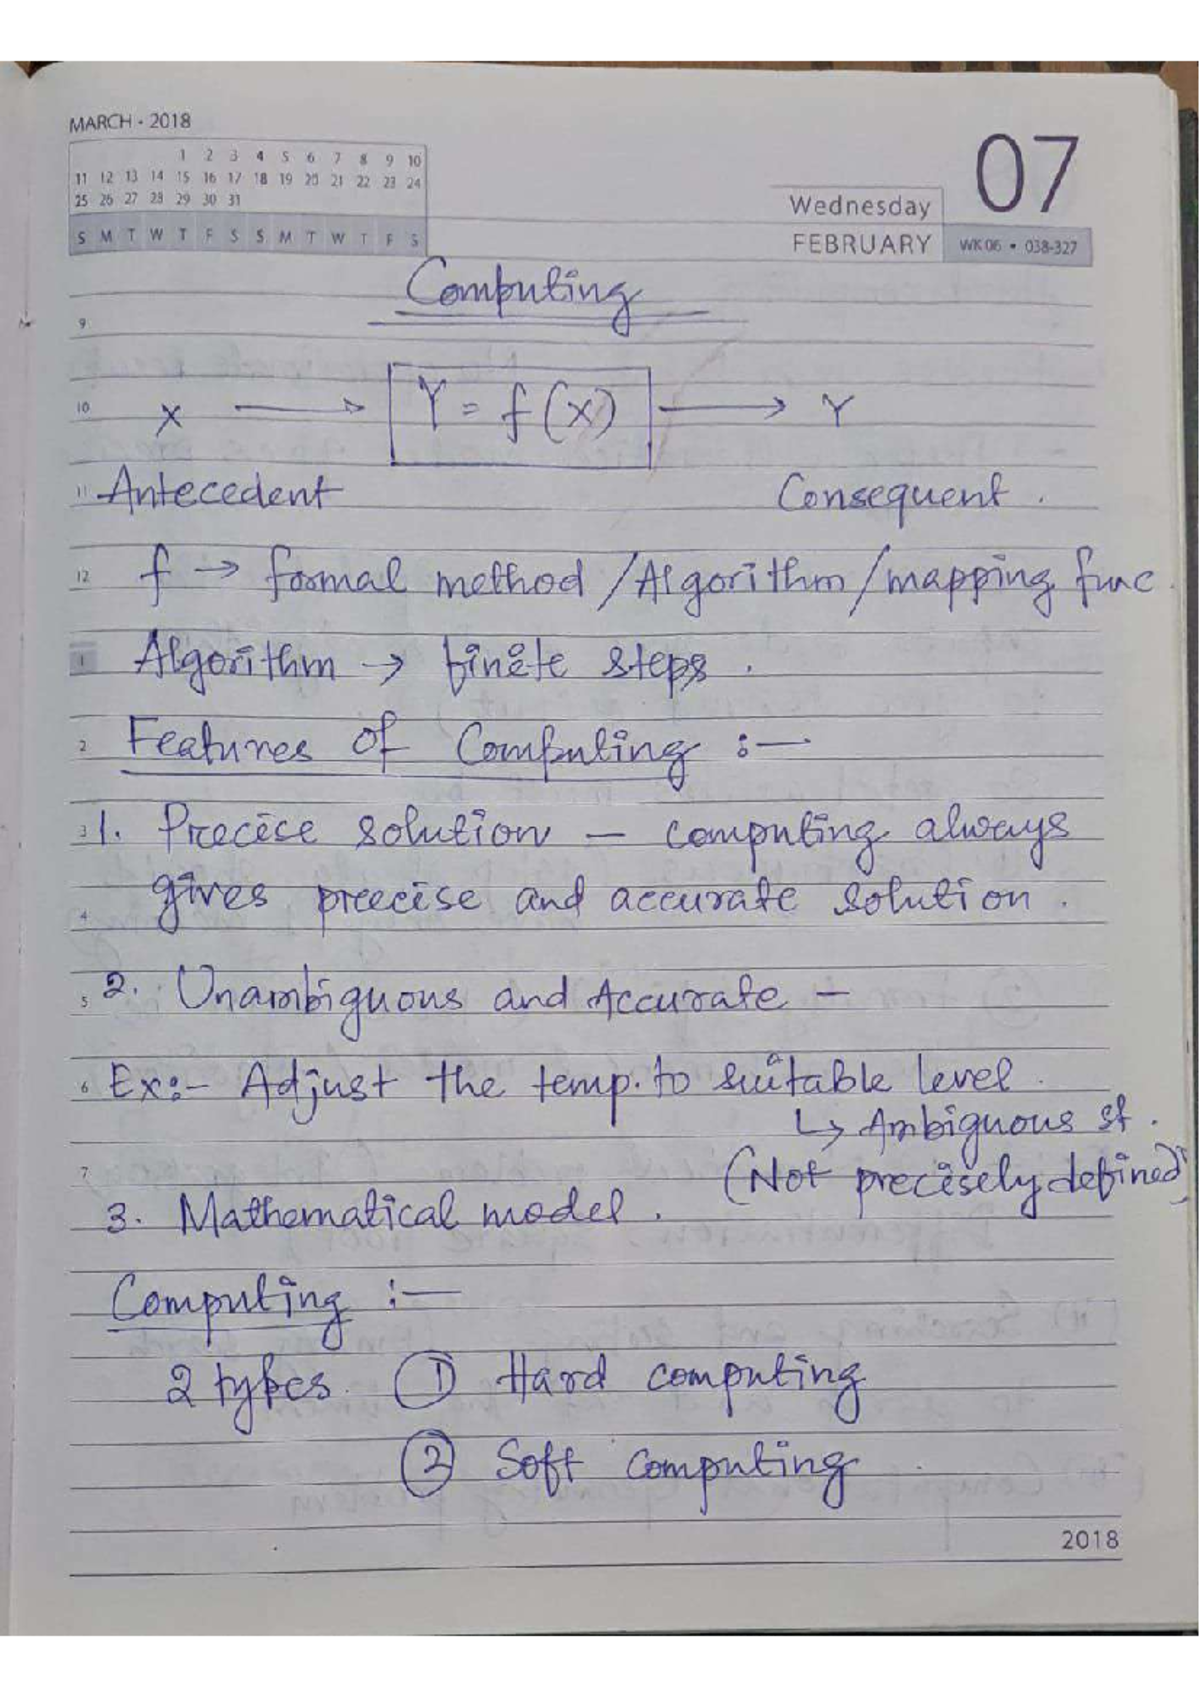 MARCH - 2018
1 2 3 4 5 6 7 8 9 10
11 12 13 14 15 16 17 18 19 20 21 22 23 24
25 26 27 28 29 30 31
S M T W T F S S M T W T F S
07
Wednesday
FEBRUARY WK 06 • 038-327
Computing
9
10 X → Y = f(x) → Y
11 Antecedent Consequent .
12 f → formal method / Algorithm / mapping func
1 Algorithm → finite steps .
2 Features of Computing :—
3 1. Precice solution — computing always
gives preecise and accurate solution .
4
5 2. Unambiguous and Accurate —
6 Ex:- Adjust the temp. to suitable level .
↳ Ambiguous st .
7 (Not precisely defined)
3. Mathematical model .
Computing :—
2 types. ① Hard computing
② Soft computing
2018